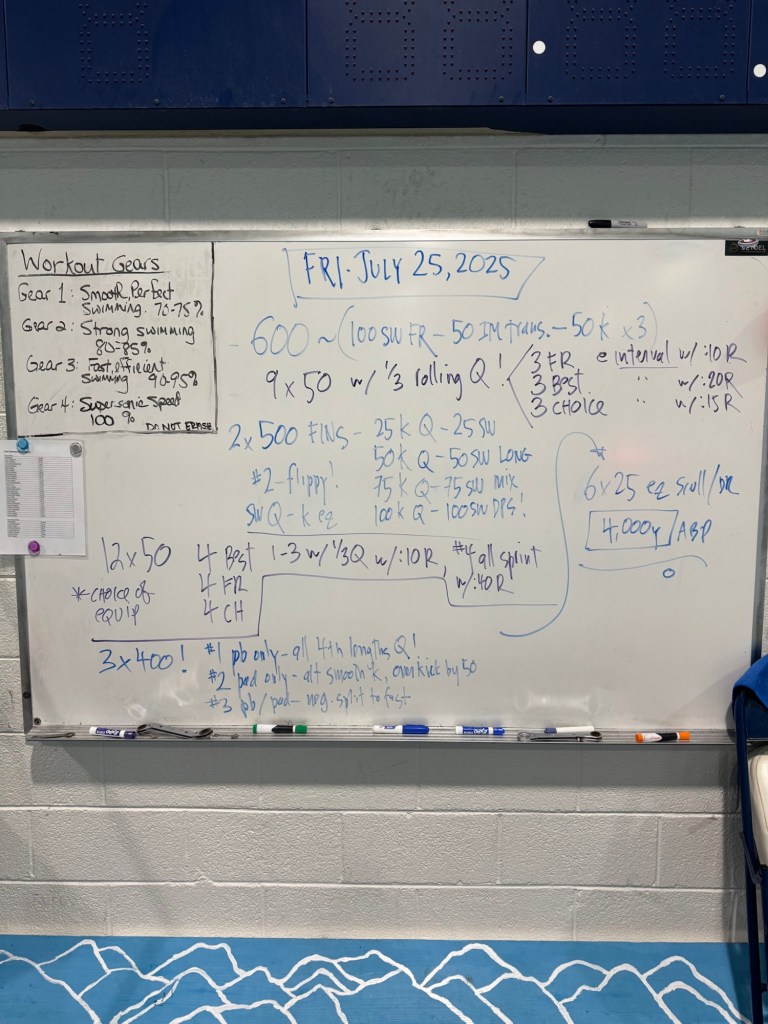 Workout Gears
Gear 1: Smooth, Perfect
Swimming. 70-75%
Gear 2: Strong swimming
80-85%
Gear 3: Fast, efficient
Swimming 90-95%
Gear 4: Supersonic Speed
100 %
DO NOT ERASE
FRI. JULY 25, 2025
- 600 ~ (100 SW FR - 50 IM trans. - 50 K x3)
9 x 50 w/ 1/3 rolling Q!
3 FR @ interval w/ :10 R
3 BEST " w/ :20R
3 CHOICE " w/ :15 R
2 x 500 FINS - 25 K Q - 25 SW
50 K Q - 50 SW LONG
#2 - flippy! 75 K Q - 75 SW MIX
SW Q - K ez 100 K Q - 100 SW DPS!
12 x 50
* CHOICE of
EQUIP
4 BEST
4 FR
4 CH
1-3 w/ 1/3 Q w/ :10 R, #4 all sprint
w/ :40R
3 x 400!
#1 pb only - all 4th lengths Q!
#2 pad only - alt smooth K, over kick by 50
#3 pb/pad - neg. split to fast
*
6 x 25 ez Scull/DR
4,000y ABP